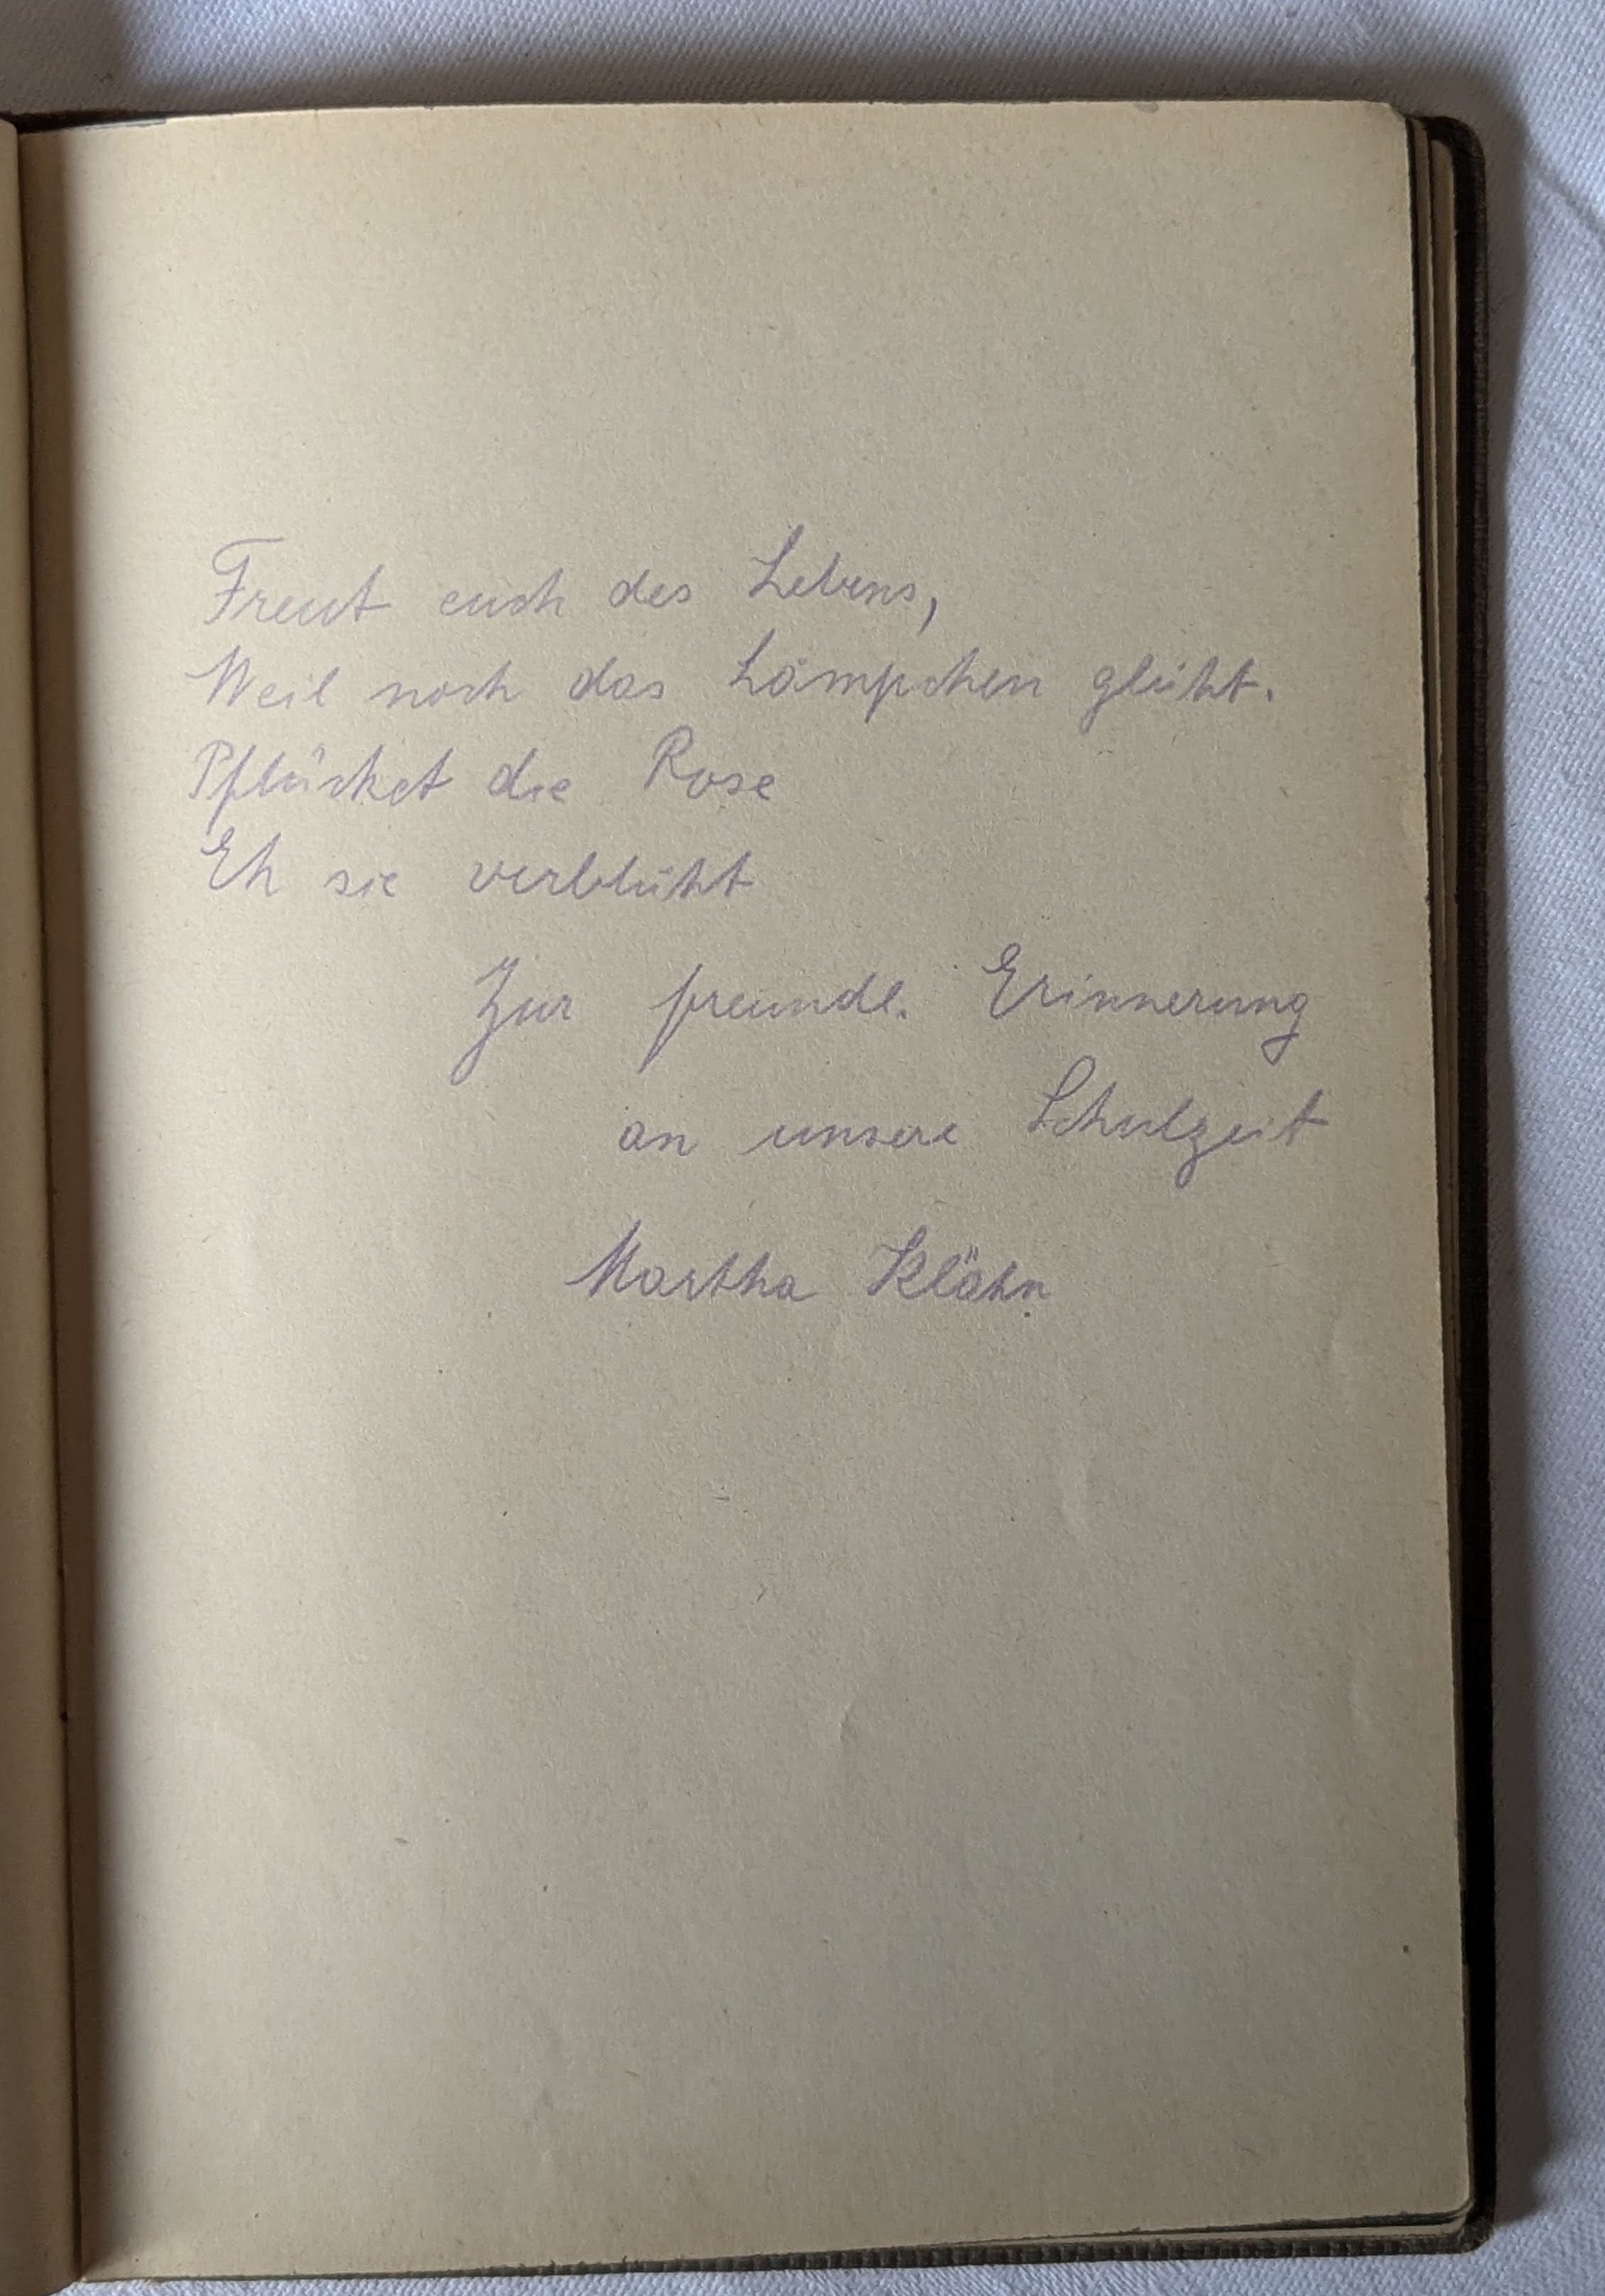 Freut euch des Lebens,
Weil noch das Lämpchen glüht.
Pflücket die Rose
Eh sie verblüht
Zur freundl. Erinnerung
an unsere Schulzeit
Martha Klähn